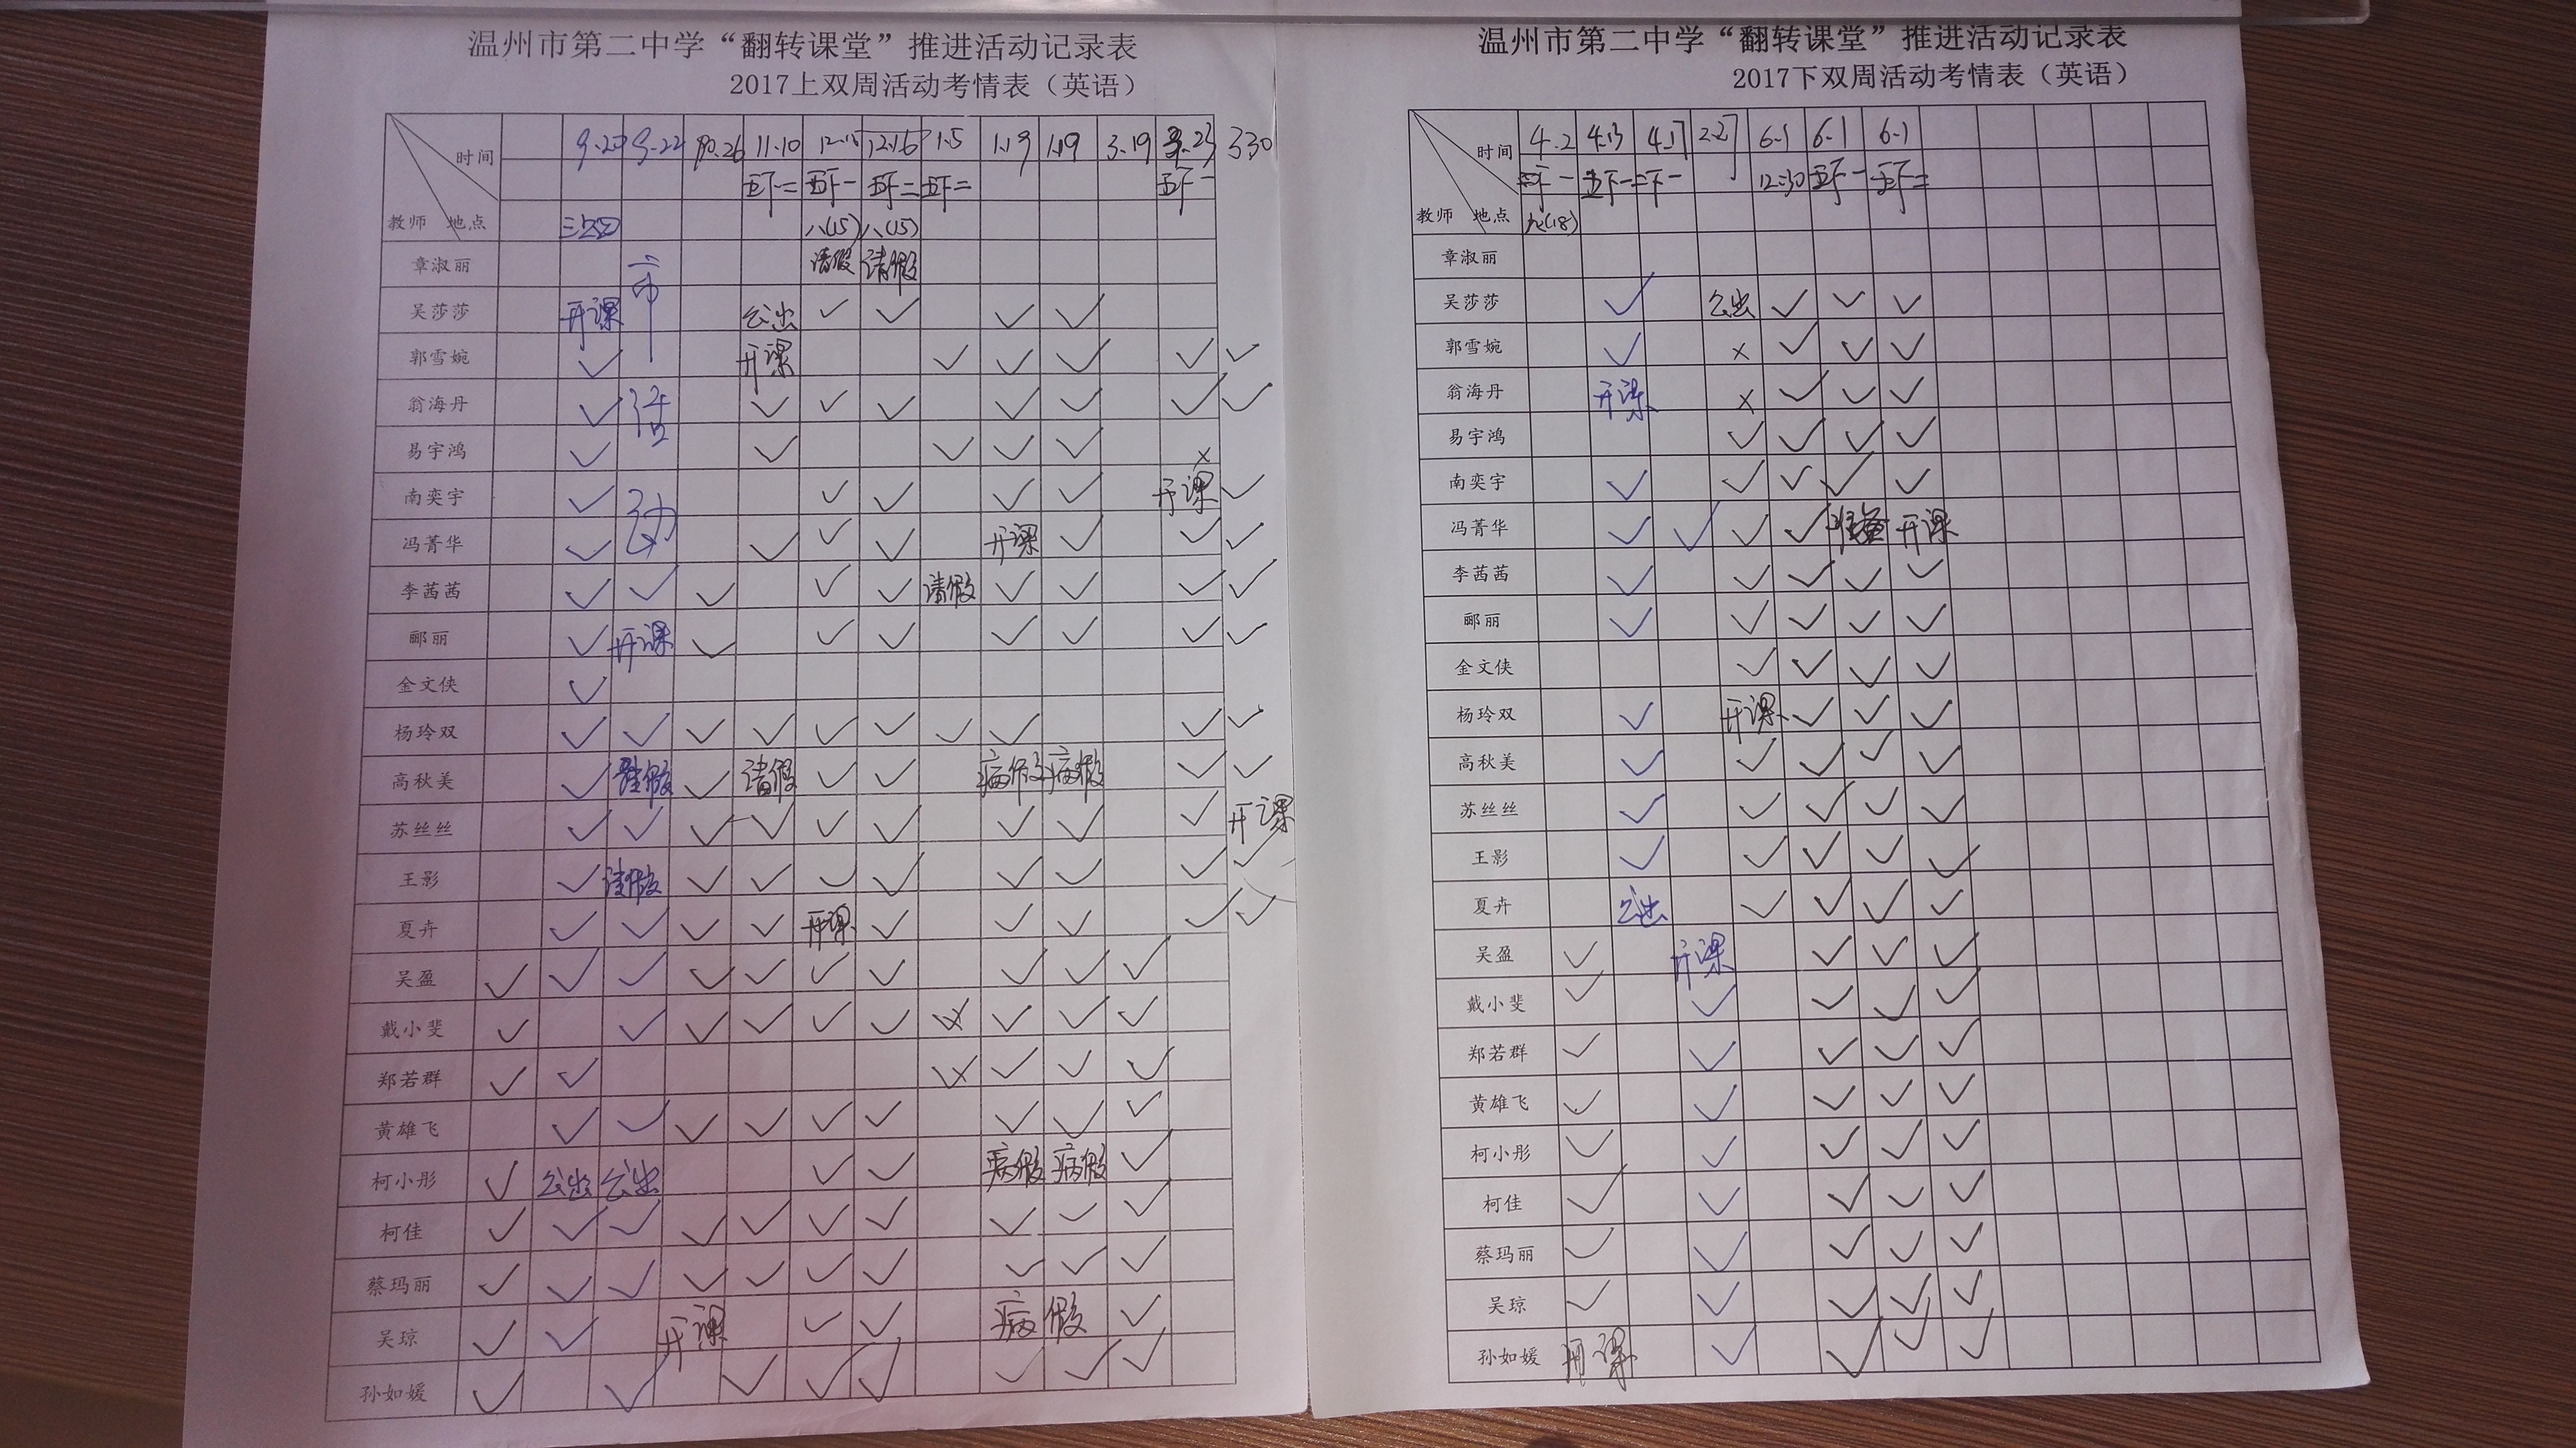 温州市第二中学“翻转课堂”推进活动记录表
2017上双周活动考情表（英语）
时间 9.20 9.22 10.26 11.10 12.15 12.16 1.5 1.19 1.19 3.19 3.23 330
教师 地点 八(15) 八(15)
章淑丽 市 请假 请假
吴莎莎 开课 公出 ✓ ✓ ✓ ✓
郭雪婉 ✓ 开课 ✓ ✓ ✓ ✓ ✓
翁海丹 ✓ 活 ✓ ✓ ✓ ✓ ✓ ✓ ✓
易宇鸿 ✓ ✓ ✓ ✓ ✓ ×
南奕宇 ✓ 动 ✓ ✓ ✓ ✓ 开课 ✓
冯菁华 ✓ ✓ ✓ ✓ 开课 ✓ ✓ ✓
李茜茜 ✓ ✓ ✓ ✓ ✓ 请假 ✓ ✓ ✓ ✓
郦丽 ✓ 开课 ✓ ✓ ✓ ✓ ✓ ✓ ✓
金文侠 ✓
杨玲双 ✓ ✓ ✓ ✓ ✓ ✓ ✓ ✓ ✓ ✓
高秋美 ✓ 请假 ✓ 请假 ✓ ✓ 病假 病假 ✓ ✓
苏丝丝 ✓ ✓ ✓ ✓ ✓ ✓ ✓ ✓ ✓ 开课
王影 ✓ 请假 ✓ ✓ ✓ ✓ ✓ ✓ ✓ ✓
夏卉 ✓ ✓ ✓ ✓ 开课 ✓ ✓ ✓ ✓ ✓
吴盈 ✓ ✓ ✓ ✓ ✓ ✓ ✓ ✓ ✓ ✓
戴小斐 ✓ ✓ ✓ ✓ ✓ ✓ ✓ ✓ ✓
郑若群 ✓ ✓ ✓ ✓ ✓
黄雄飞 ✓ ✓ ✓ ✓ ✓ ✓ ✓ ✓ ✓
柯小彤 ✓ 公出 公出 ✓ ✓ 病假 病假 ✓
柯佳 ✓ ✓ ✓ ✓ ✓ ✓ ✓ ✓ ✓ ✓
蔡玛丽 ✓ ✓ ✓ ✓ ✓ ✓ ✓ ✓ ✓ ✓
吴琼 ✓ ✓ 开课 ✓ ✓ 病假 ✓
孙如媛 ✓ ✓ ✓ ✓ ✓ ✓ ✓ ✓
温州市第二中学“翻转课堂”推进活动记录表
2017下双周活动考情表（英语）
时间 4.2 4.13 4.17 2.27 6.1 6.1 6.1
12:30
教师 地点 九(18)
章淑丽
吴莎莎 ✓ 公出 ✓ ✓ ✓
郭雪婉 ✓ × ✓ ✓ ✓
翁海丹 开课 × ✓ ✓ ✓
易宇鸿 ✓ ✓ ✓ ✓
南奕宇 ✓ ✓ ✓ ✓ ✓
冯菁华 ✓ ✓ ✓ ✓ 准备 开课
李茜茜 ✓ ✓ ✓ ✓ ✓
郦丽 ✓ ✓ ✓ ✓ ✓
金文侠 ✓ ✓ ✓ ✓
杨玲双 ✓ 开课 ✓ ✓ ✓
高秋美 ✓ ✓ ✓ ✓ ✓
苏丝丝 ✓ ✓ ✓ ✓ ✓
王影 ✓ ✓ ✓ ✓ ✓
夏卉 公出 ✓ ✓ ✓ ✓
吴盈 ✓ 开课 ✓ ✓ ✓
戴小斐 ✓ ✓ ✓ ✓ ✓
郑若群 ✓ ✓ ✓ ✓ ✓
黄雄飞 ✓ ✓ ✓ ✓ ✓
柯小彤 ✓ ✓ ✓ ✓ ✓
柯佳 ✓ ✓ ✓ ✓ ✓
蔡玛丽 ✓ ✓ ✓ ✓ ✓
吴琼 ✓ ✓ ✓ ✓ ✓
孙如媛 开课 ✓ ✓ ✓ ✓